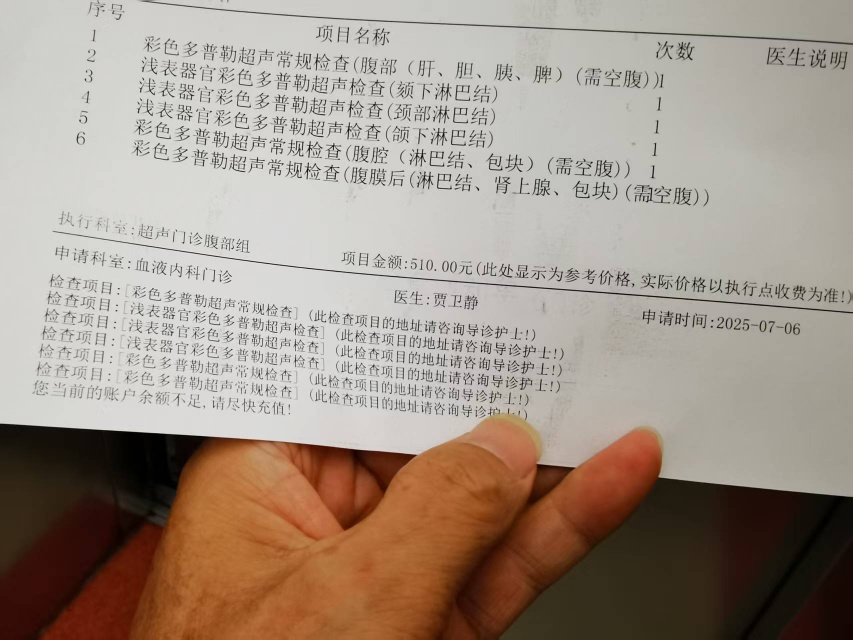 序号 项目名称 次数 医生说明
1 彩色多普勒超声常规检查(腹部（肝、胆、胰、脾）(需空腹)) 1
2 浅表器官彩色多普勒超声检查(颏下淋巴结) 1
3 浅表器官彩色多普勒超声检查(颈部淋巴结) 1
4 浅表器官彩色多普勒超声检查(颌下淋巴结) 1
5 彩色多普勒超声常规检查(腹腔（淋巴结、包块）(需空腹)) 1
6 彩色多普勒超声常规检查(腹膜后(淋巴结、肾上腺、包块)(需空腹))
执行科室:超声门诊腹部组
项目金额:510.00元(此处显示为参考价格,实际价格以执行点收费为准!)
申请科室:血液内科门诊 医生:贾卫静 申请时间:2025-07-06
检查项目:[彩色多普勒超声常规检查] (此检查项目的地址请咨询导诊护士!)
检查项目:[浅表器官彩色多普勒超声检查] (此检查项目的地址请咨询导诊护士!)
检查项目:[浅表器官彩色多普勒超声检查] (此检查项目的地址请咨询导诊护士!)
检查项目:[浅表器官彩色多普勒超声检查] (此检查项目的地址请咨询导诊护士!)
检查项目:[彩色多普勒超声常规检查] (此检查项目的地址请咨询导诊护士!)
检查项目:[彩色多普勒超声常规检查] (此检查项目的地址请咨询导诊护士!)
您当前的账户余额不足,请尽快充值!